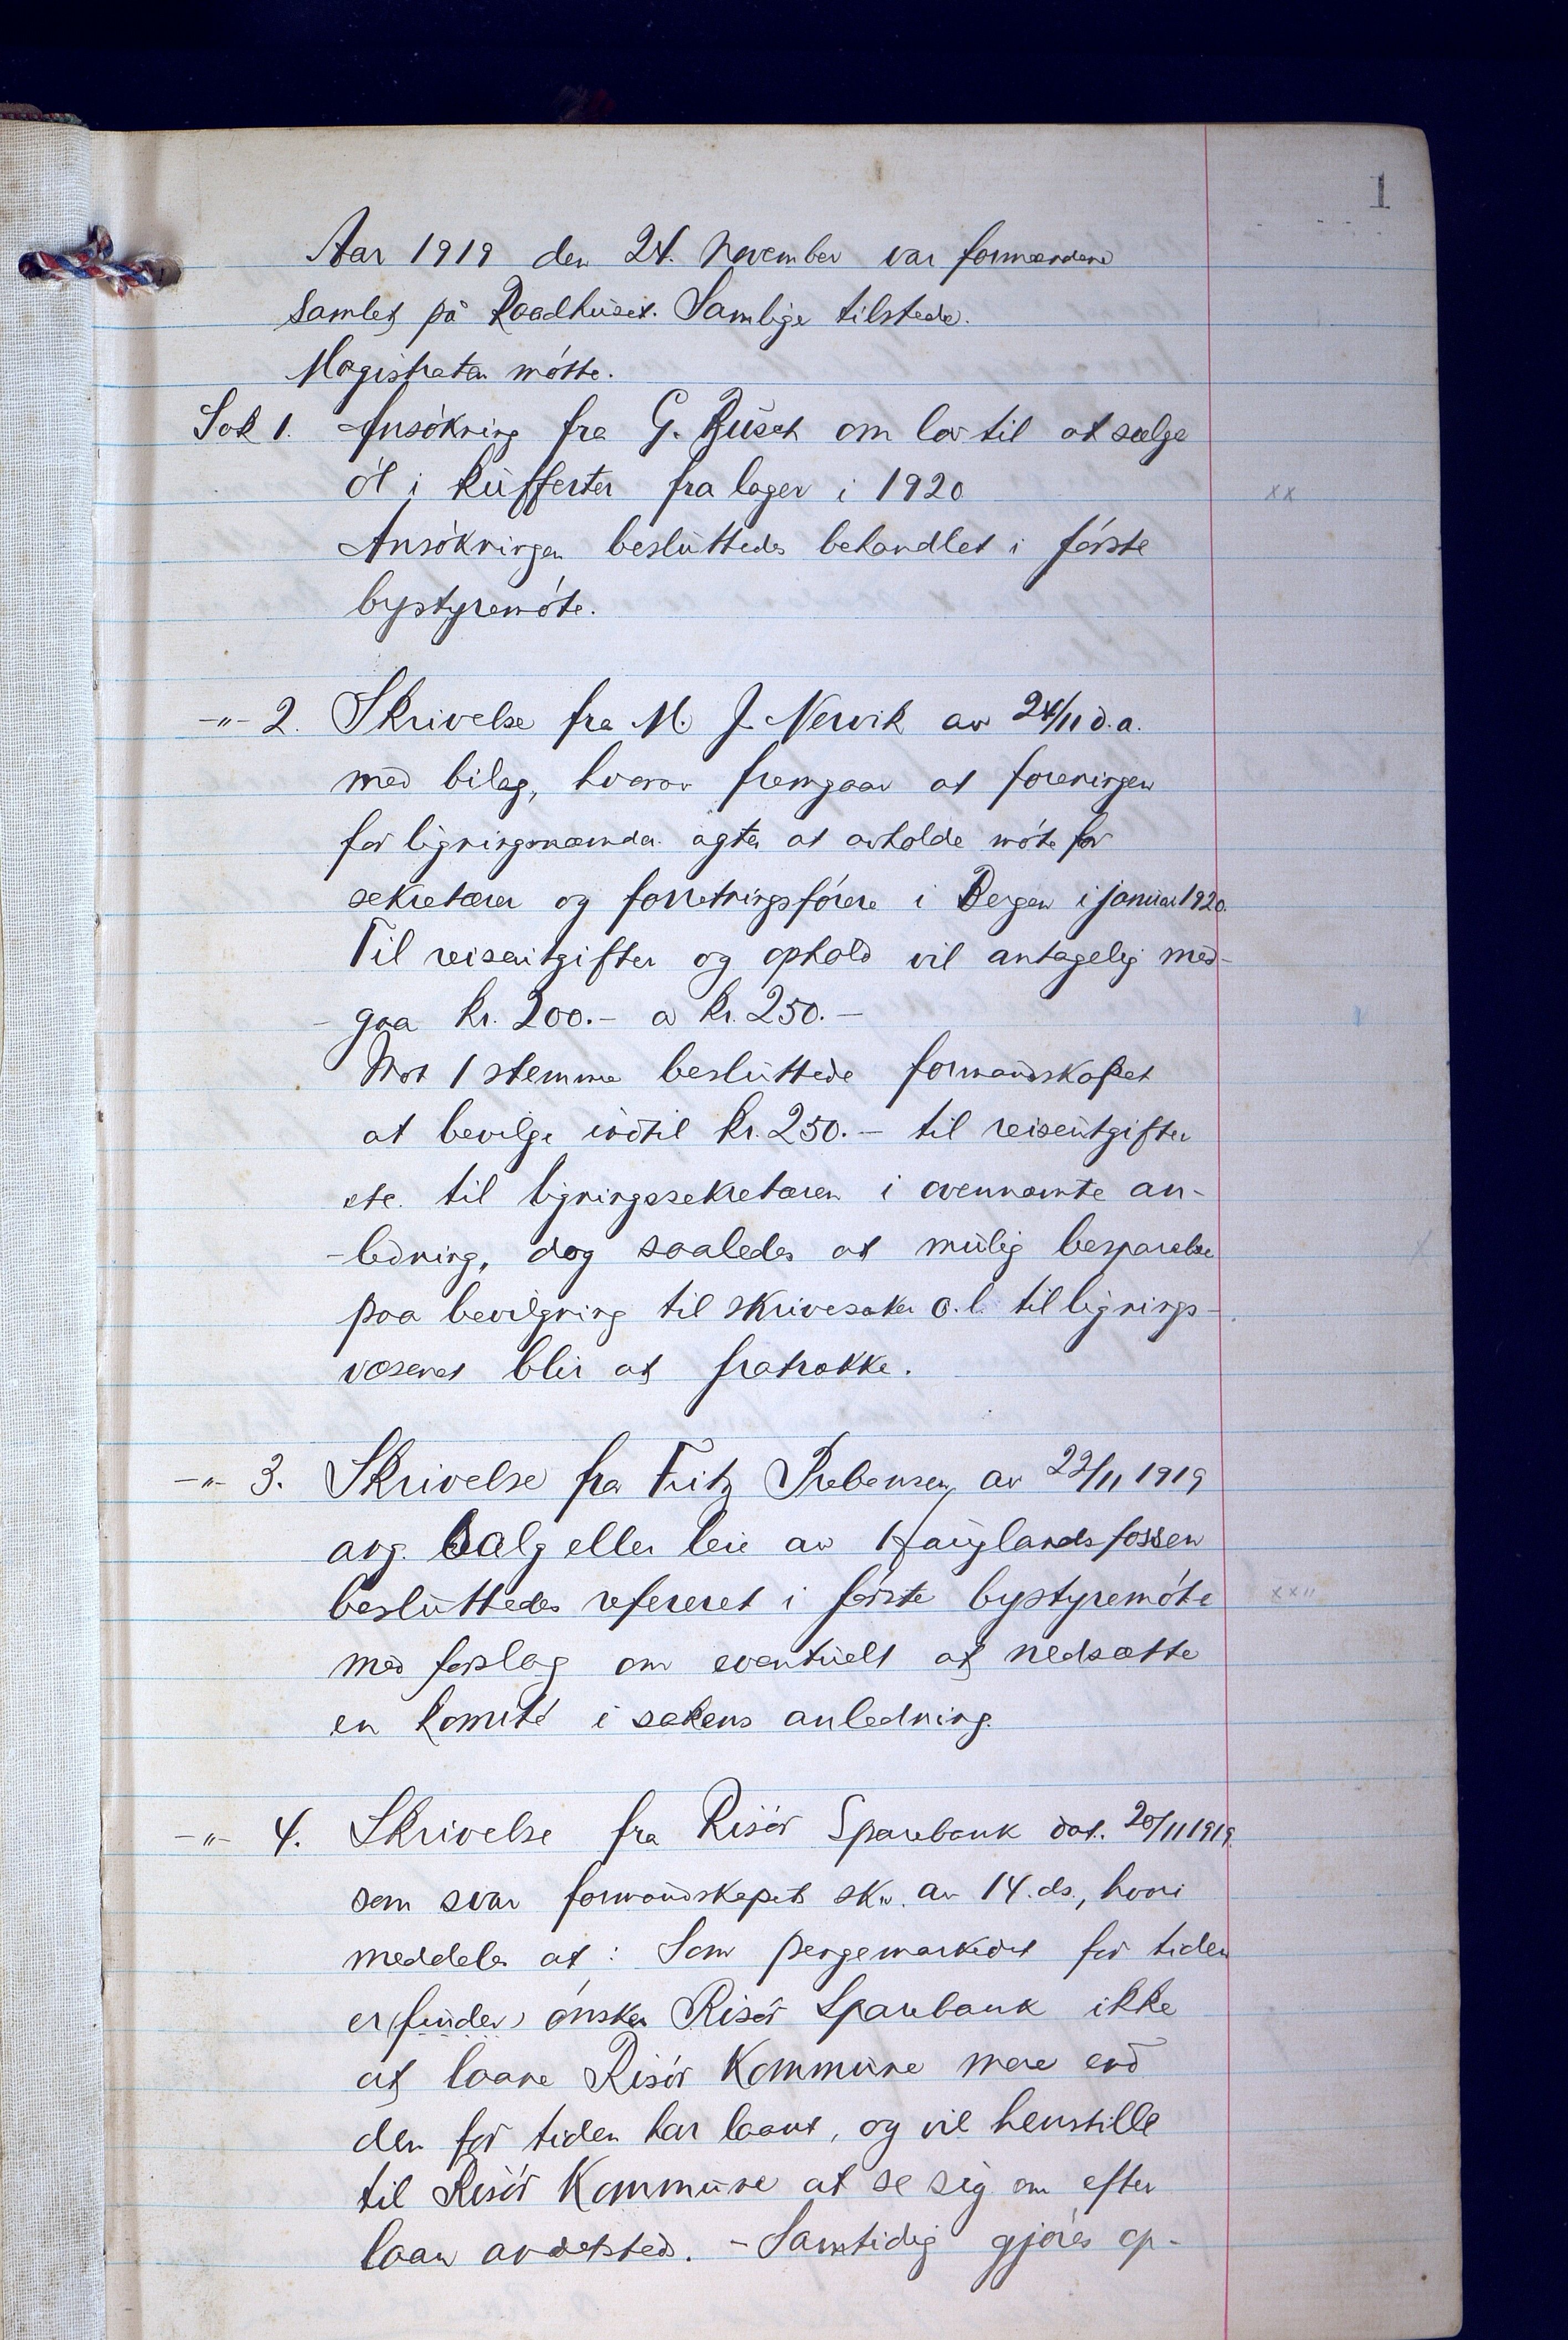 1
Aar 1919 den 24. November var formændene
samlet på Raadhuset. Samlige tilstede.
Magistraten møtte.
Sak 1. Ansøkning fra G. Busch om lov til at sælge
øl i kufferter fra lager i 1920
xx
Ansøkningen besluttedes behandlet i første
bystyremøte.
-"- 2. Skrivelse fra M. J. Nervik av 24/11 d.a.
med bilag, hvorav fremgaar at foreningen
for ligningsnæmder agter at avholde møte for
sekretærer og forretningsførere i Bergen i januar 1920.
Til reiseutgifter og ophold vil antagelig med-
-gaa kr. 200.- a kr. 250.-
Mot 1 stemme besluttede formandskapet
at bevilge indtil kr. 250.- til reiseutgifter
etc. til ligningssekretæren i ovennævnte an-
-ledning, dog saaledes at mulig besparelse
paa bevilgning til skrivesaker o.l. til lignings-
væsenet blir at fratrække.
-"- 3. Skrivelse fra Fritz Prebensen av 22/11 1919
ang. salg eller leie av Hauglandsfossen
besluttedes refereret i første bystyremøte
xx"
med forslag om eventuelt at nedsætte
en komité i sakens anledning.
-"- 4. Skrivelse fra Risør Sparebank dat. 20/11 1919.
som svar formandskapets skr. av 14. ds., hvori
meddeles at: Som pengemarkedet for tiden
er (finder) ønsker Risør Sparebank ikke
at laane Risør Kommune mere end
den for tiden har laant, og vil henstille
til Risør Kommune at se sig om efter
laan andetsteds. - Samtidig gjøres op-